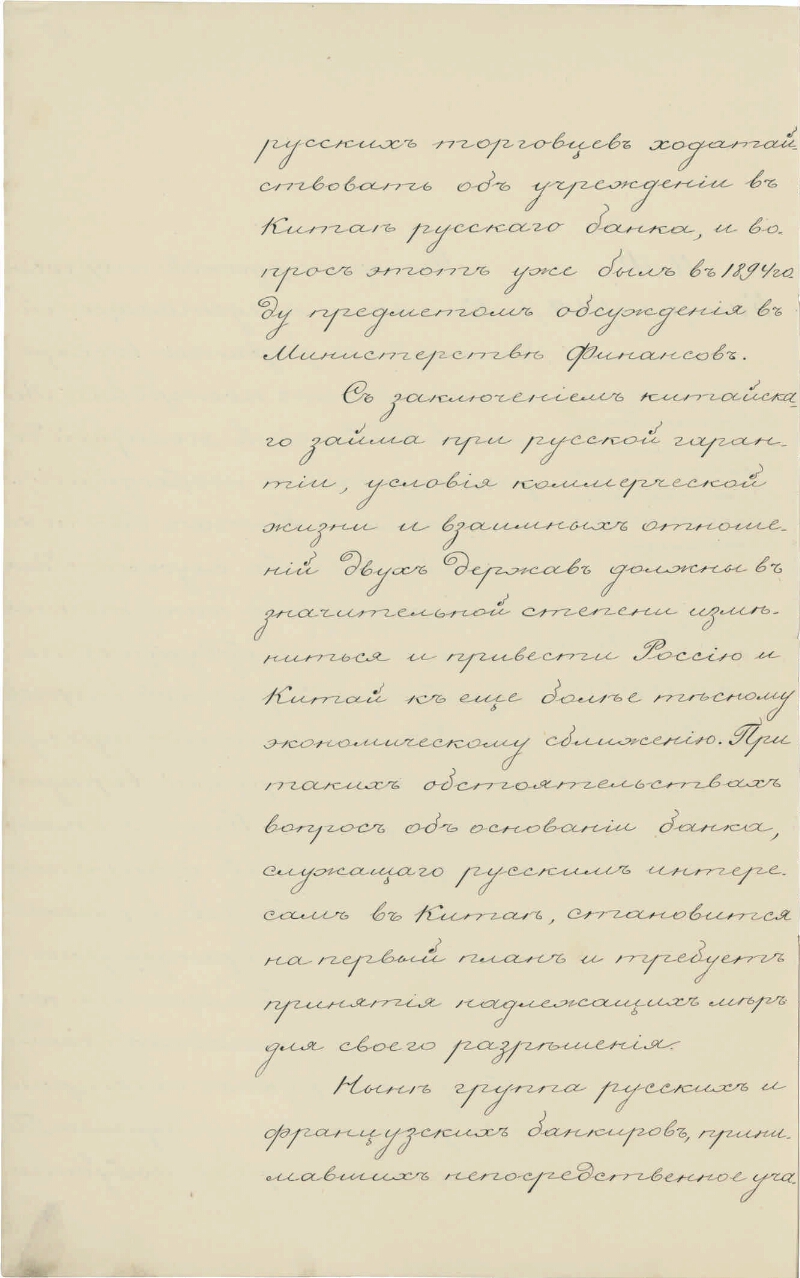 русскихъ торговцевъ ходатай-
ствовать объ учрежденіи въ
Китаѣ русскаго банка, и во-
просъ этотъ уже былъ въ 1894 го-
ду предметомъ обсужденія въ
Министерствѣ Финансовъ.
Съ заключеніемъ китайска-
го займа при русской гаран-
тіи, условія коммерческой
жизни и взаимныхъ отноше-
ній двухъ державъ должны въ
значительной степени измѣ-
ниться и привести Россію и
Китай къ еще болѣе тѣсному
экономическому сближенію. При
такихъ обстоятельствахъ
вопросъ объ основаніи банка,
служащаго русскимъ интере-
самъ въ Китаѣ, становится
на первый планъ и требуетъ
принятія надлежащихъ мѣръ
для своего разрѣшенія.
Нынѣ группа русскихъ и
французскихъ банкировъ, прини-
мавшихъ непосредственное уча-